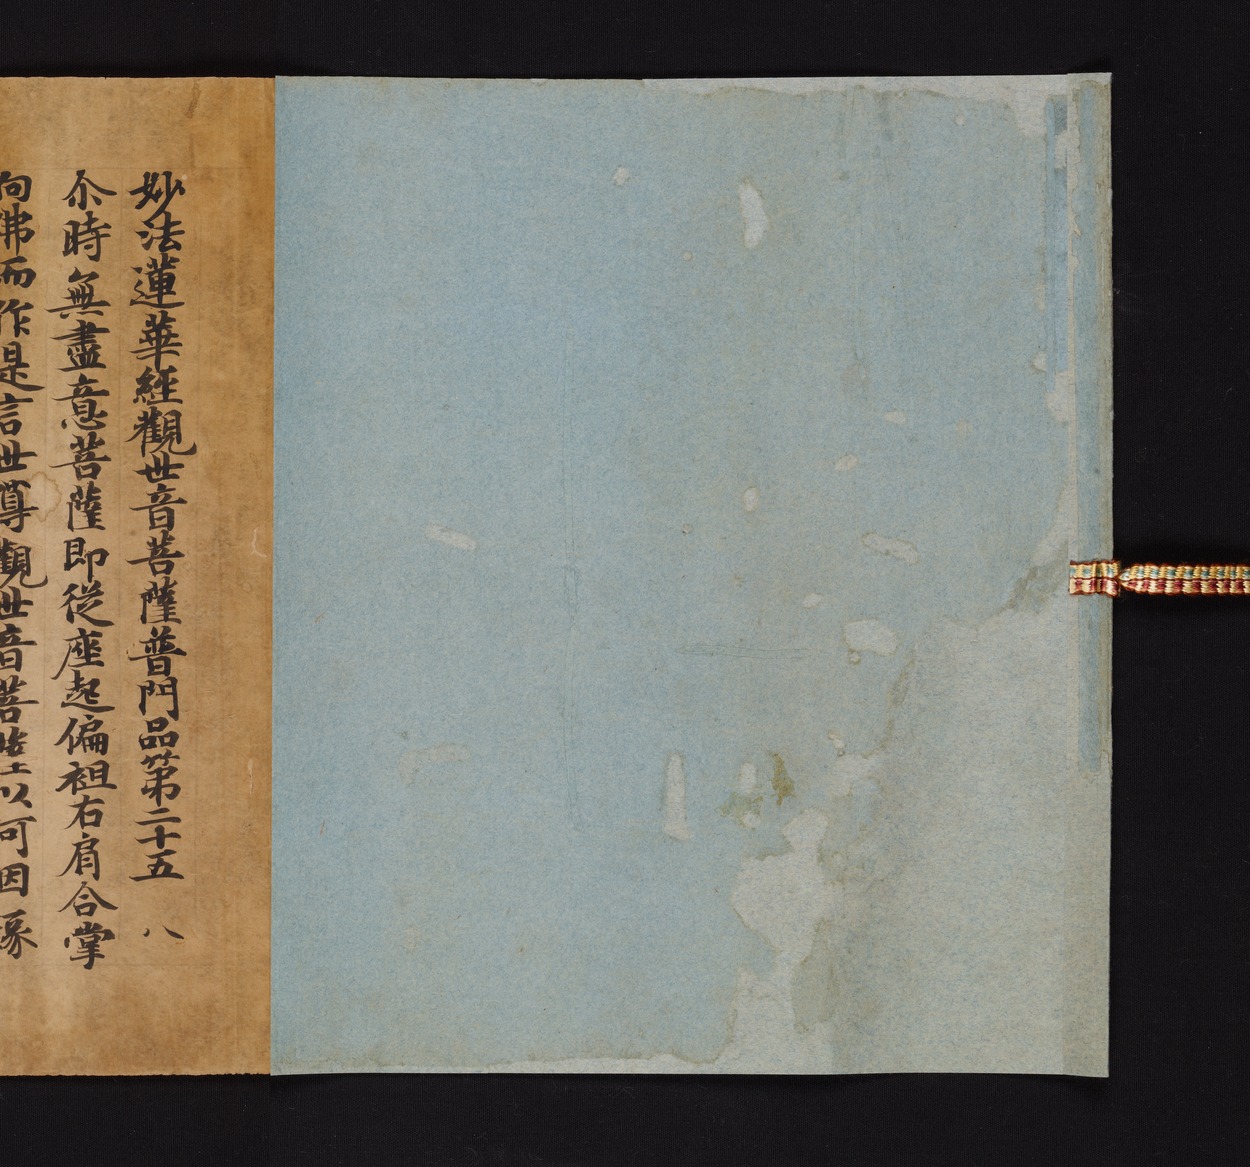 妙法蓮華經觀世音菩薩普門品第二十五 八
尒時無盡意菩薩即從座起偏袒右肩合掌
向佛而作是言世尊觀世音菩薩以何因緣